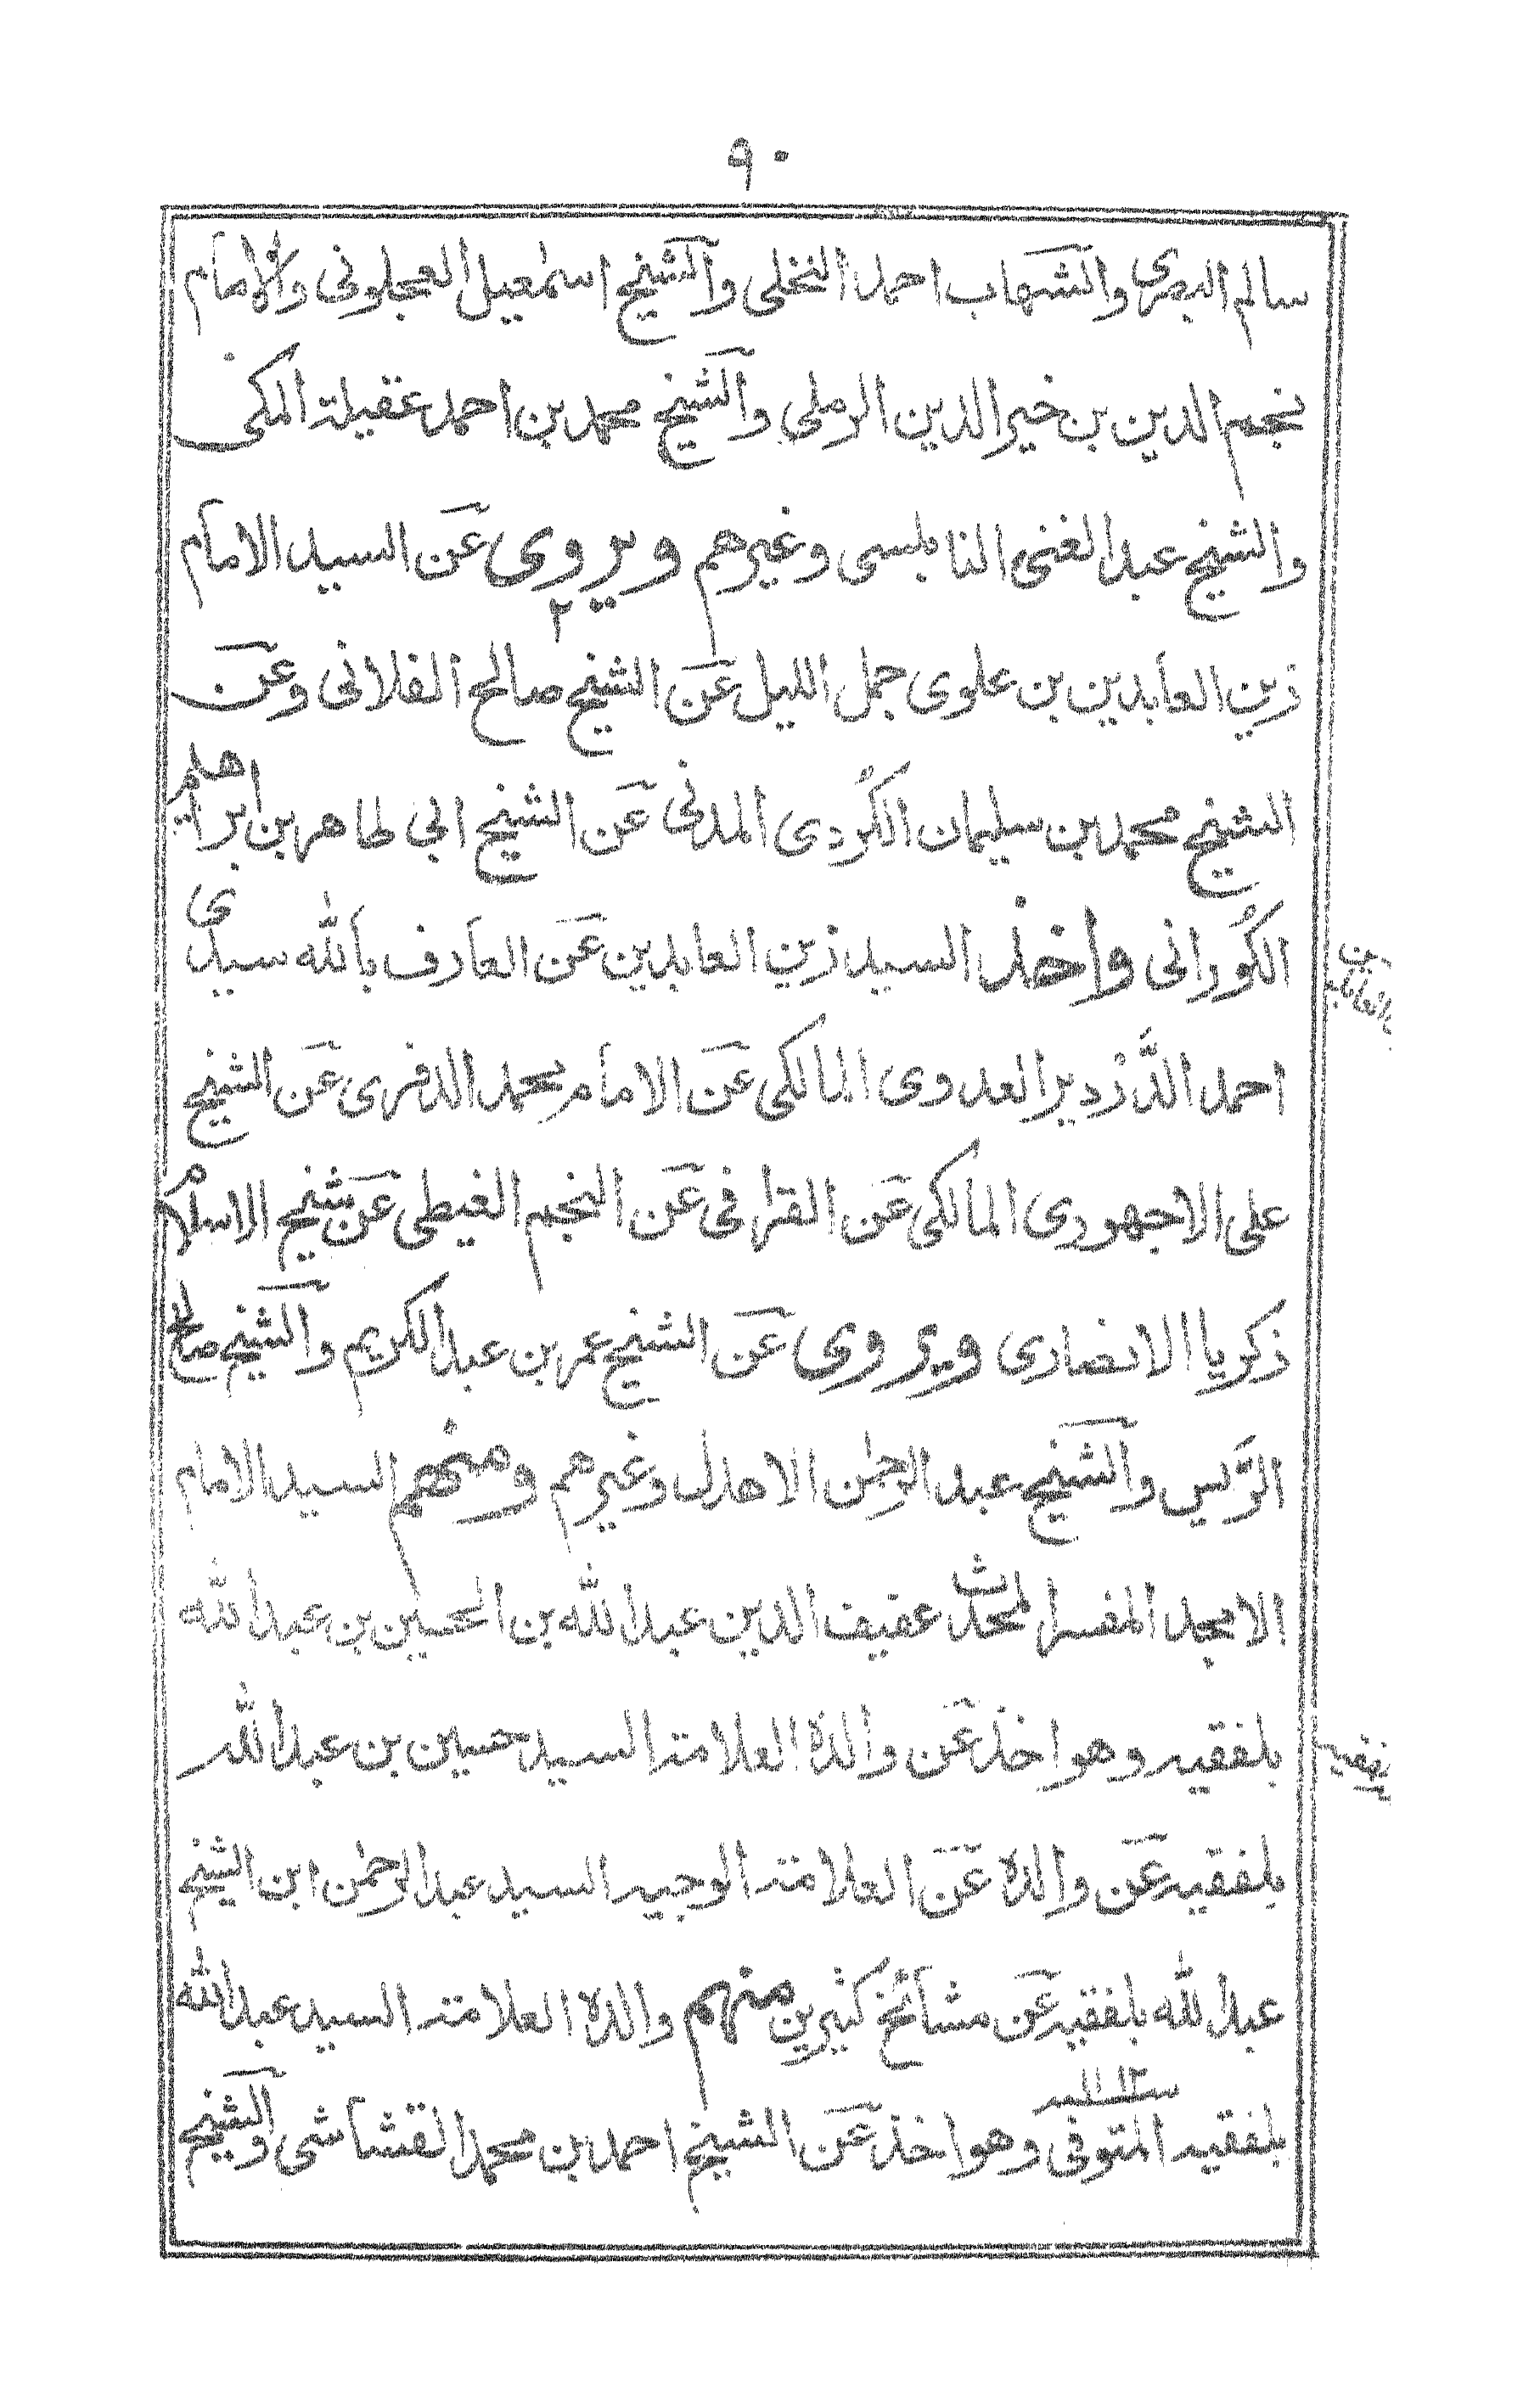 ٩٠
سالم البصرى والشهاب احمد النخلى والشيخ اسمٰعيل العجلونى والامام
نجم الدين بن خير الدين الرملى والشيخ محمد بن احمد عقيلة المكى
والشيخ عبد الغنى النابلسى وغيرهم ويروى عن السيد الامام
زين العابدين بن علوى جمل الليل عن الشيخ صالح الفلانى وعن
الشيخ محمد بن سليمان الكُردى المدنى عن الشيخ ابى طاهر بن ابراهيم
الكُورانى واخذ السيد زين العابدين عن العارف بالله سيدى
احمد الدَّردير العدوى المالكى عن الامام محمد الدفرى عن الشيخ
على الاجهورى المالكى عن القرافى عن النجم الغيطى عن شيخ الاسلام
زكريا الانصارى ويروى عن الشيخ عمر بن عبد الكريم والشيخ صالح
الرَّيس والشيخ عبد الرحمٰن الاهدل وغيرهم ومنهم السيد الامام
الامجد المفسر المحدث عفيف الدين عبد الله بن الحسين بن عبد الله
بلفقيه وهو اخذ عن والده العلامة السيد حسين بن عبد الله
بلفقيه عن والده عن العلامة الوجيه السيد عبد الرحمٰن ابن الشيخ
عبد الله بلفقيه عن مشائخ كثيرين منهم والده العلامة السيد عبد الله
بلفقيه المتوفى وهو اخذ عن الشيخ احمد بن محمد القشاشى والشيخ